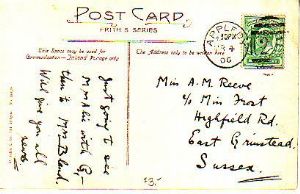 POST CARD
FRITH'S SERIES
This Space may be used for
Communication - Inland Postage only
The Address only to be written here
APPLE
06
Just going to see
Mrs Ali with G,-
then to Mrs Bland.
Will give you all
news
Miss A. M. Reeve
c/o Miss Frost
Highfield Rd.
East Grinstead
Sussex.